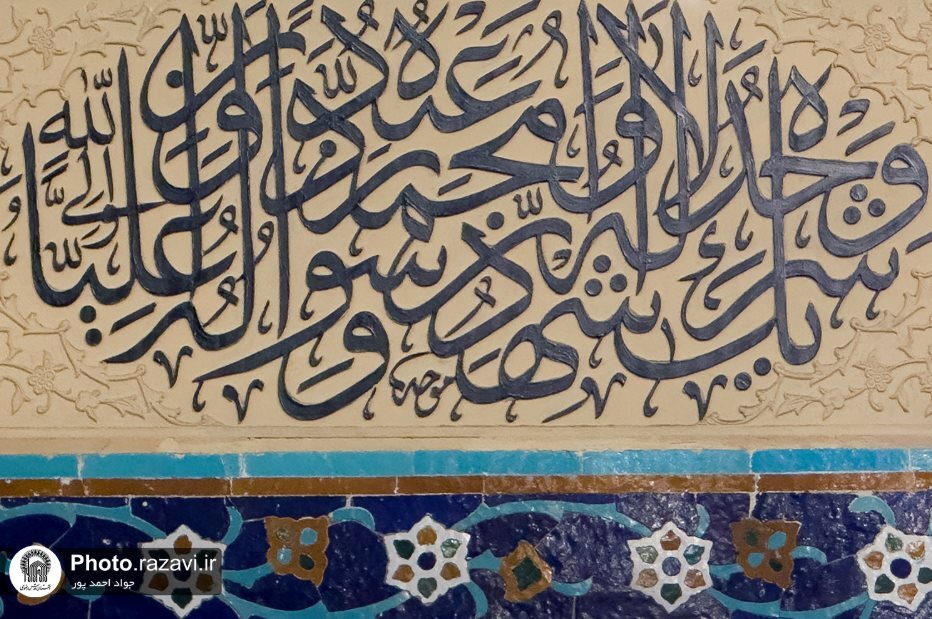 وحده لا شريك له و اشهد ان محمدا عبده و رسوله و ان عليا ولي الله
موحد
Photo.razavi.ir
جواد احمد پور